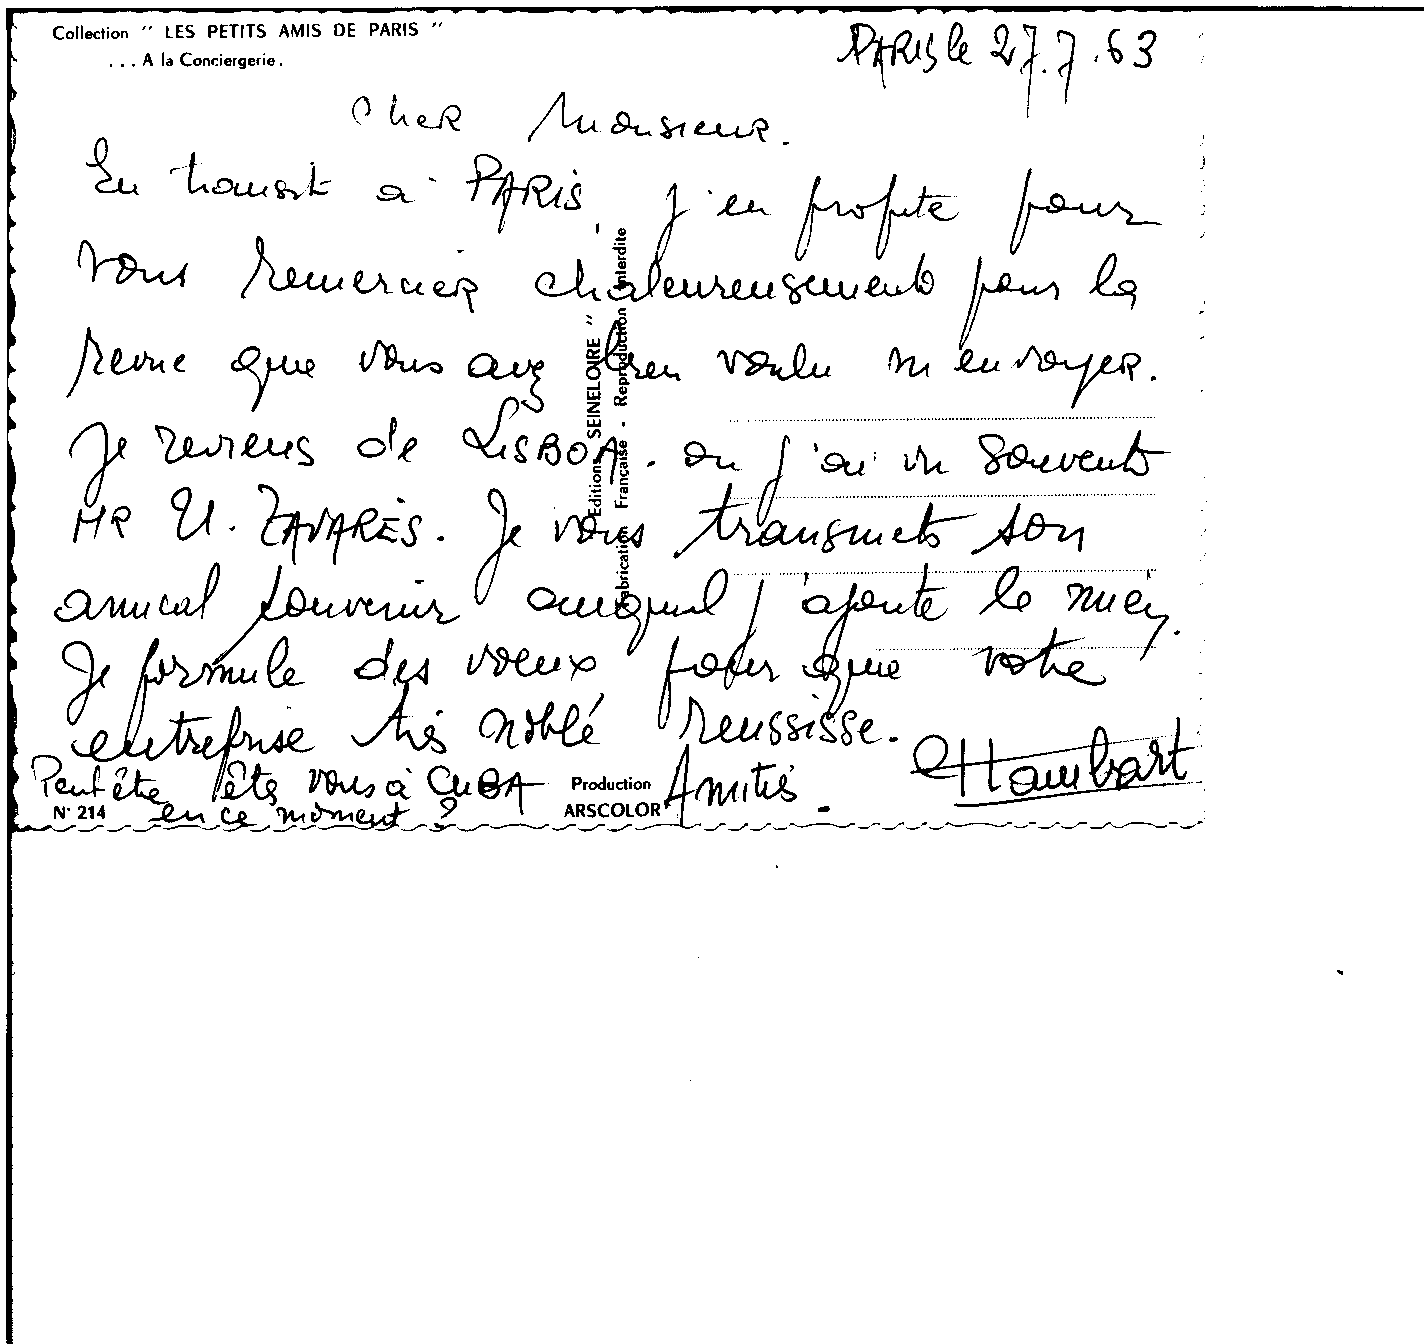 Collection " LES PETITS AMIS DE PARIS "
... A la Conciergerie.
PARIS le 27.7.63
Cher Monsieur.
En transit à PARIS, j'en profite pour
vous remercier chaleureusement pour la
revue que vous avez bien voulu m'envoyer.
Je reviens de LISBOA. ou j'ai vu souvent
MR U. TAVARES. Je vous transmets son
amical souvenir auquel j'ajoute le mien.
Je formule des voeux pour que votre
entreprise très noble réussisse.
Peut être êtes vous à CUBA
en ce moment ?
Amitiés.
Editions " SEINELOIRE "
Fabrication Française - Reproduction Interdite
N° 214
Production
ARSCOLOR